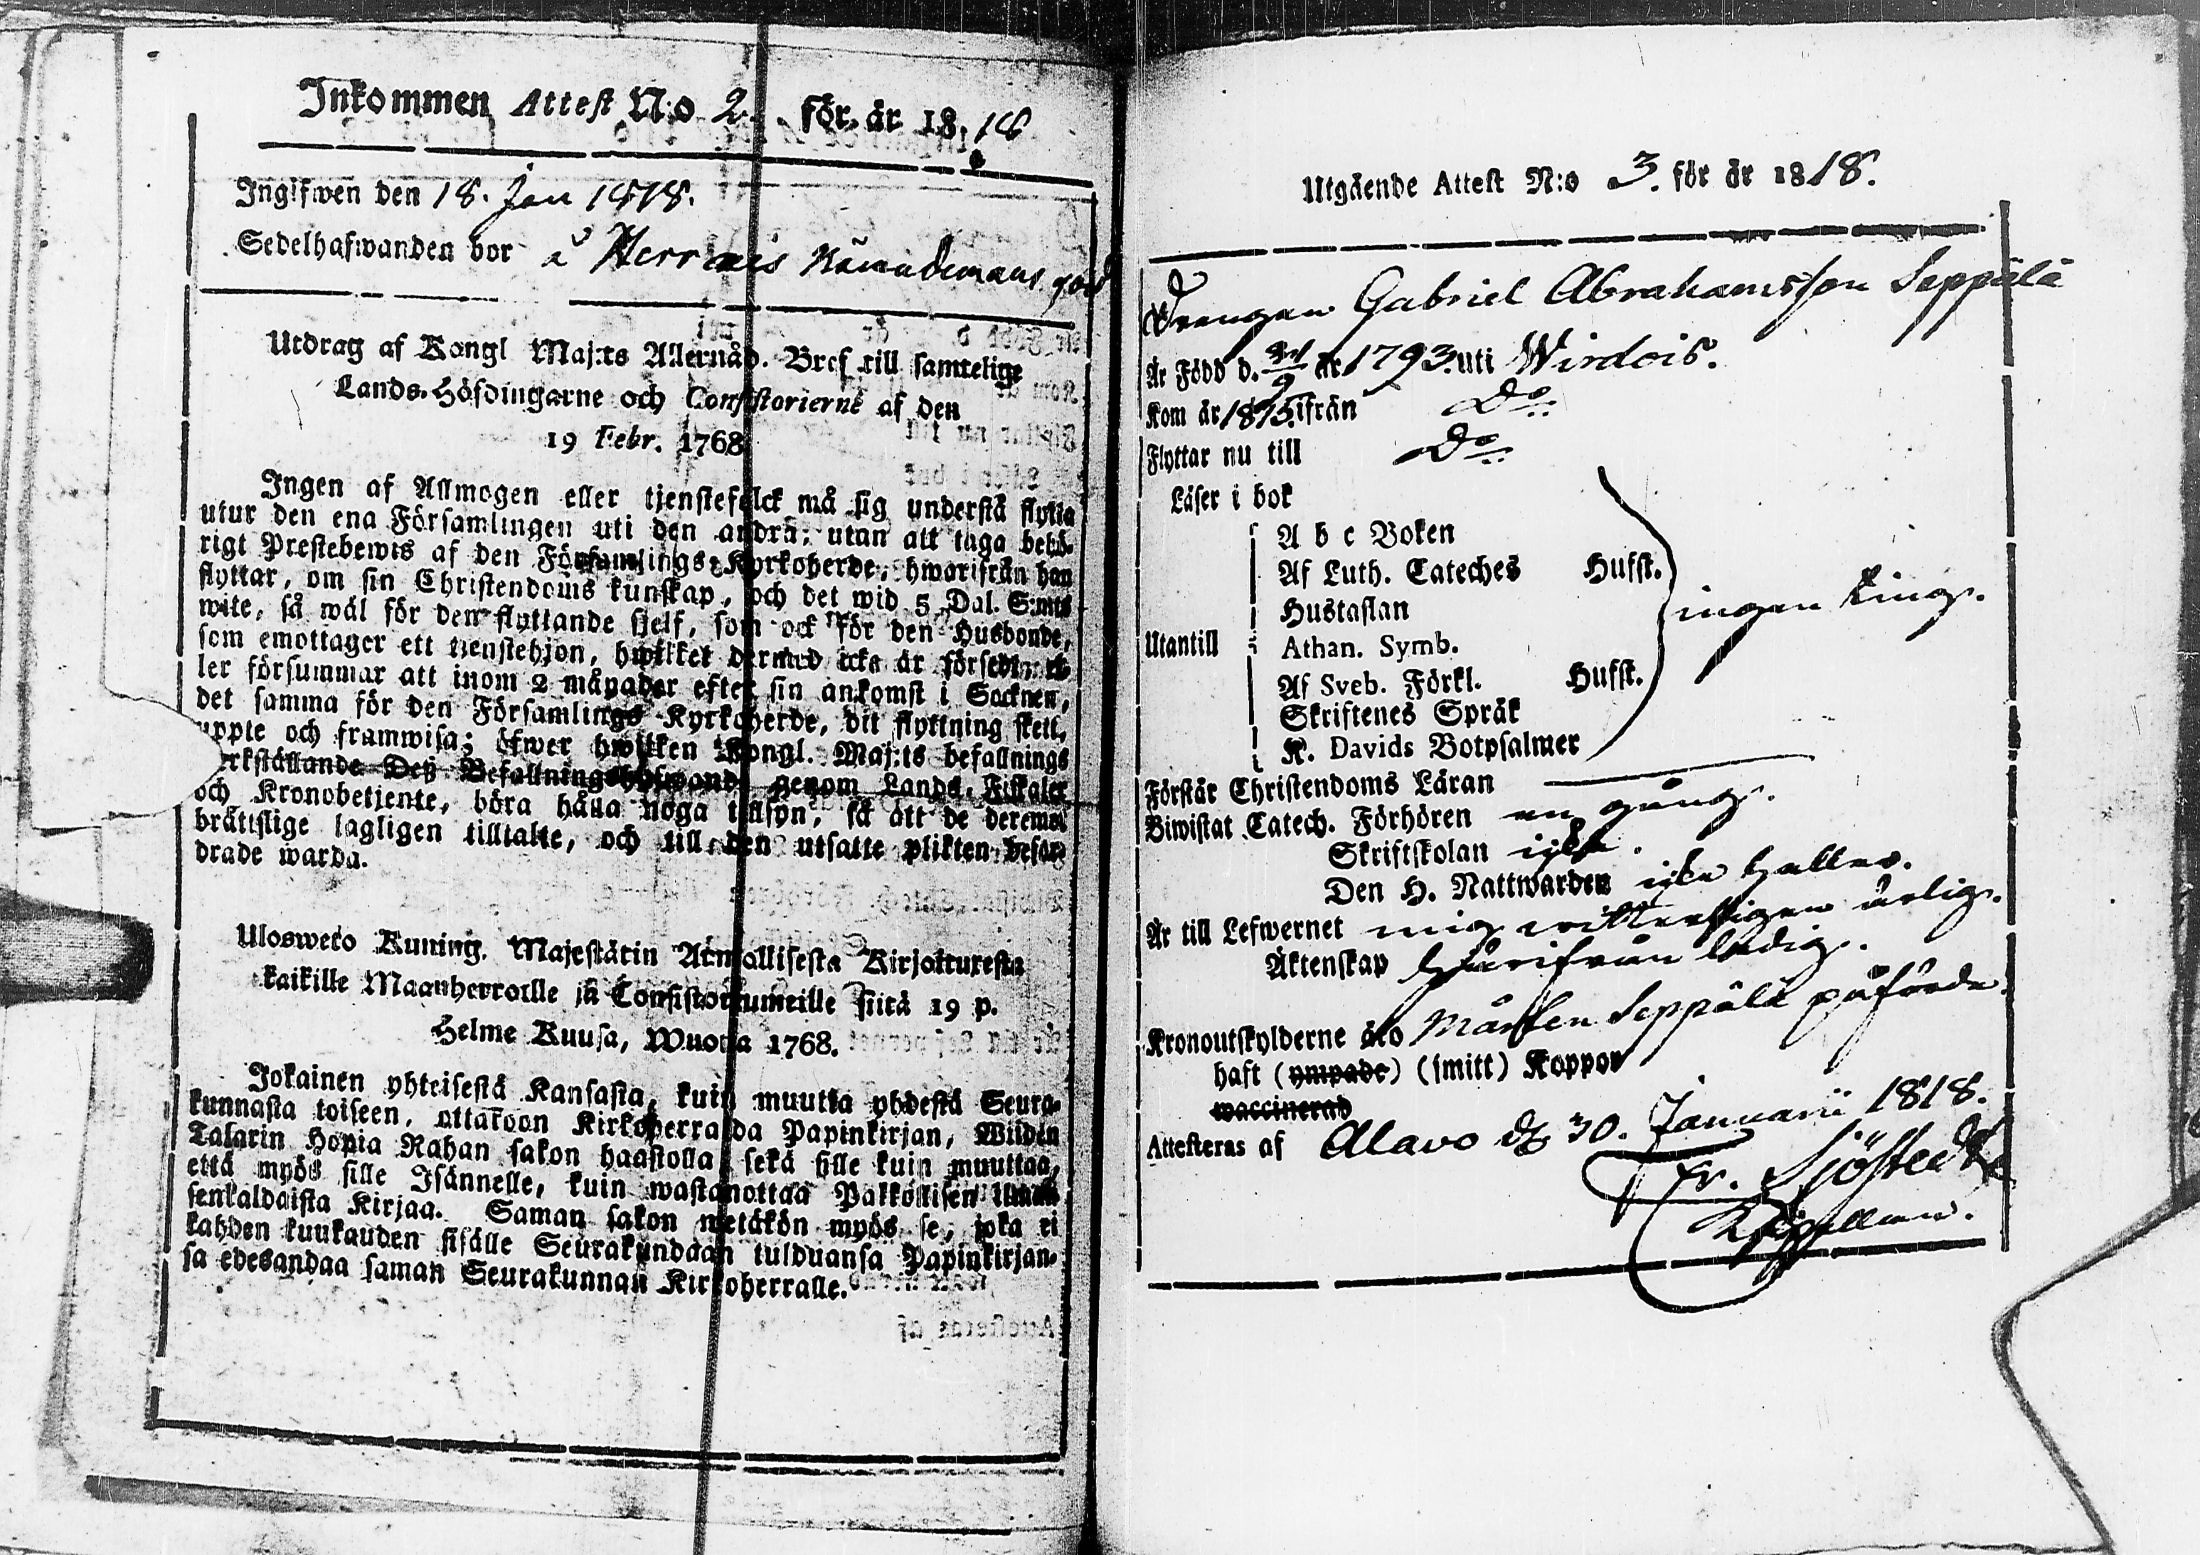 Inkommen Attest N:o 2. för år 18.18
Ingifwen den 18. Jan 1818.
Sedelhafwanden bor å
Utdrag af Kongl Maj:ts Allernåd. Bref till samtelige
Lands-Höfdingarne och Consistorierne af den
19 Febr. 1768
Ingen af Allmogen eller tjenstefolck må sig understå flytta
utur den ena Församlingen uti den andra; utan att taga behö-
rigt Prestebewis af den Församlings-Kyrkoherde, hwarifrån han
flyttar, om sin Christendoms kunskap, och det wid 5 Dal. S:mts
wite, så wäl för den flyttande sjelf, som ock för den Husbonde,
som emottager ett tjenstehjon, hwilket dermed icke är försedt, el-
ler försummar att inom 2 månader efter sin ankomst i Socknen,
det samma för den Församlings Kyrkoherde, dit flyttning skett,
uppte och framwisa; öfwer hwilken Kongl. Maj:ts befallnings
erkställande Deß Befallningshafwande genom Lands-Fiskaler
och Kronobetjente, böra hålla noga tillsyn, så att de deremot
bråttslige lagligen tilltalte, och till den utsatte plikten befor-
drade warda.
Ulosweto Kuning. Majestätin Armollisesta Kirjoituresta
kaikille Maanherroille ja Consistoriumeille siitä 19 p.
Helme Kuusa, Wuonna 1768.
Jokainen yhteisestä Kansasta, kuin muutta yhdestä Seura-
kunnasta toiseen, ottakoon Kirkoherralda Papinkirjan, Wiiden
Talarin Hopia Rahan sakon haastolla, sekä sille kuin muuttaa,
että myös sille Isännelle, kuin wastanottaa Palkollisen ilman
senkaldaista Kirjaa. Saman sakon wetäkön myös se, joka ei
kahden kuukauden sisälle Seurakundaan tulduansa Papinkirjan-
sa edesandaa saman Seurakunnan Kirkoherralle.
Utgående Attest N:o 3. för år 1818.
Drengen Gabriel Abrahamsson Seppälä
Är Född d. år 1793. uti Wirdois.
Kom år 1815. ifrån Do
Flyttar nu till Do
Läser i bok
A b c Boken
Af Luth. Cateches Hufst.
Hustaflan ingen ting.
Utantill Athan. Symb.
Af Sveb. Förkl. Hufst.
Skriftenes Språk
K. Davids Botpsalmer
Förstår Christendoms Läran
Biwistat Catech. Förhören en gång.
Skriftskolan icke.
Den H. Nattwarden icke heller.
Är till Lefwernet mig witterligen ärlig.
Äktenskap härifrån ledig.
Kronoutskylderne äro Mårten Seppälä påförde.
haft (ympade) (smitt) Koppor
waccinerad
Attesteras af Alavo d. 30. Januarii 1818.
Fr. Sjöstedt
Kapellan.